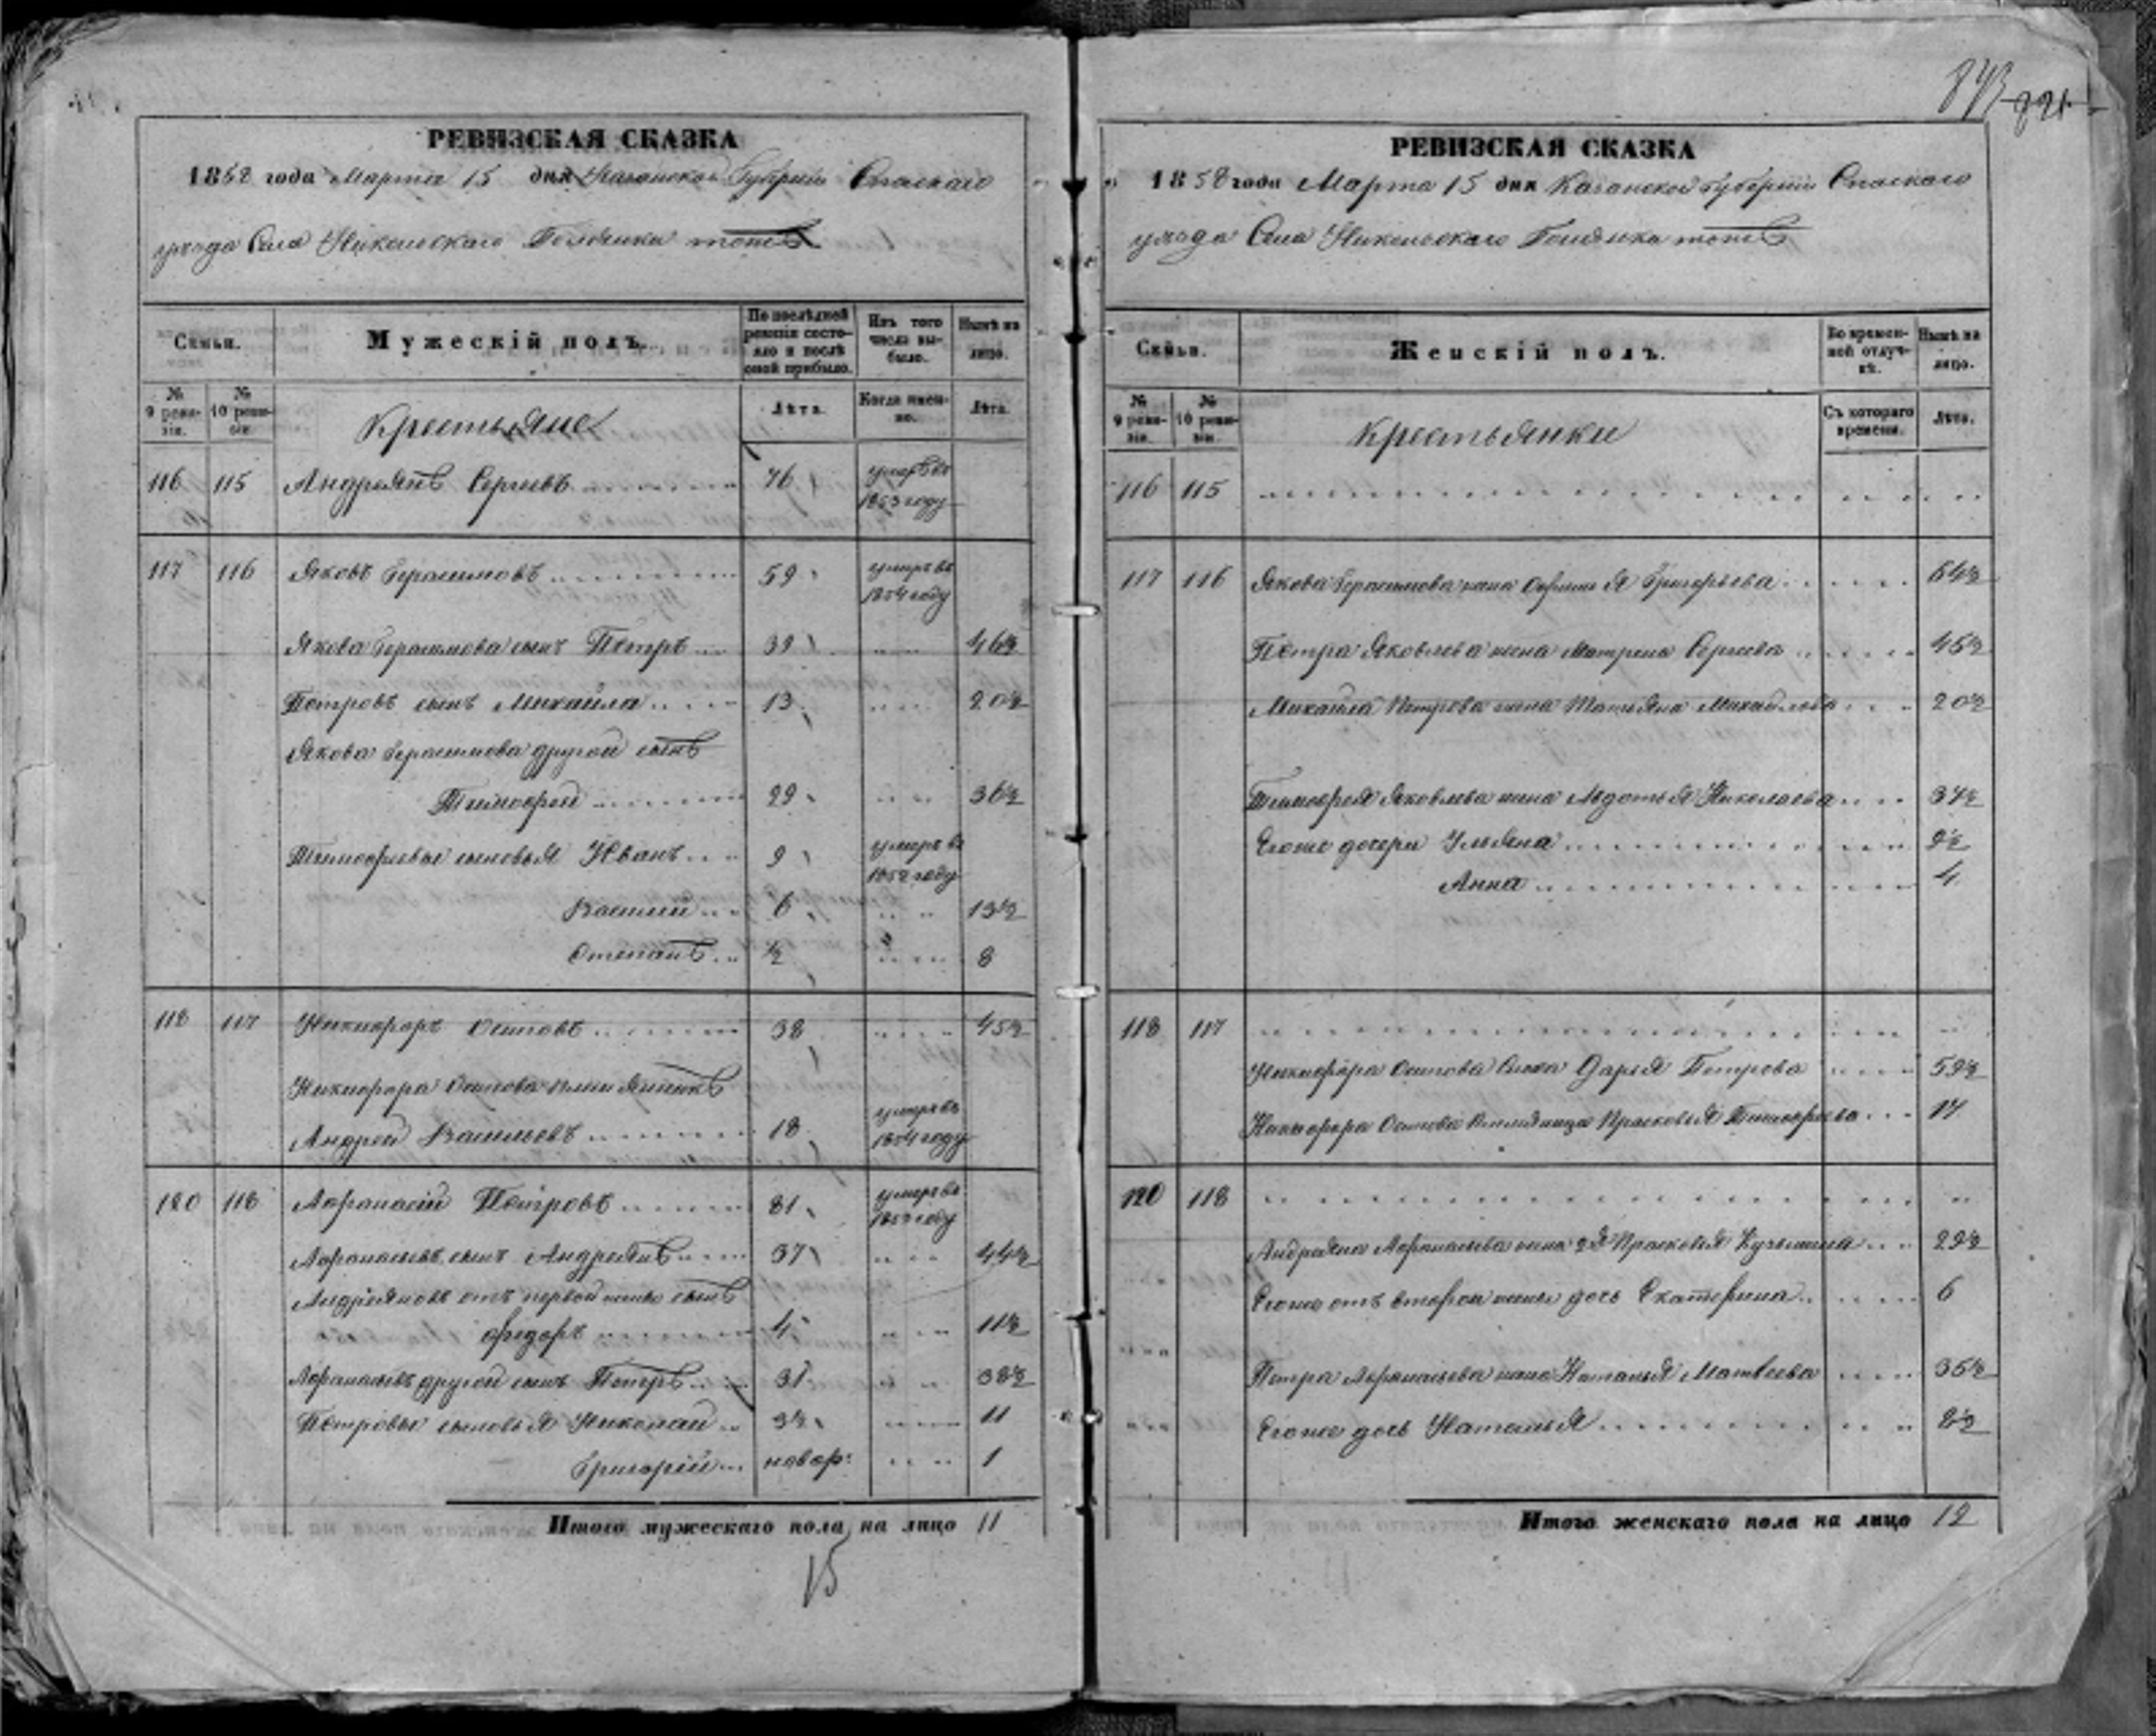 843 821
РЕВИЗСКАЯ СКАЗКА
1858 года Марта 15 дня Казанской Губернии Спаскаго
уѣзда Села Никольскаго тожъ
Семьи.
Мужескій полъ.
По послѣдней ревизіи состояло и послѣ оной прибыло.
Изъ того числа выбыло.
Нынѣ на лицо.
№ 9 ревизіи.
№ 10 ревизіи.
Крестьяне
Лѣта.
Когда именно.
Лѣта.
116 115 Андреянъ Сергѣевъ 76 умеръ въ 1853 году
117 116 Яковъ Герасимовъ 59 умеръ въ 1854 году
Якова Герасимова сынъ Петръ 39 46½
Петровъ сынъ Михайла 13 20½
Якова Герасимова другой сынъ
Тимофей 29 36½
Тимофеевы сыновья Иванъ 9 умеръ въ 1852 году
Василий 6 13½
Степанъ ½ 8
118 117 Никифоръ Осиповъ 38 45½
Никифора Осипова племянникъ
Андрей Васильевъ 18 умеръ въ 1854 году
120 118 Афанасий Петровъ 81 умеръ въ году
Афанасьевъ сынъ Андреянъ 37 44½
Андреяновъ отъ первой жены сынъ
Федоръ 4 11½
Афанасьевъ другой сынъ Петръ 31 38½
Петровы сыновья Николай 3½ 11
Григорій новор: 1
Итого мужескаго пола на лицо 11
15
РЕВИЗСКАЯ СКАЗКА
1858 года Марта 15 дня Казанской Губернии Спаскаго
уѣзда Села Никольскаго тожъ
Семьи.
Женскій полъ.
Во временной отлучкѣ.
Нынѣ на лицо.
№ 9 ревизіи.
№ 10 ревизіи.
Крестьянки
Съ котораго времени.
Лѣта.
116 115
117 116 Якова Герасимова жена Григорьева 64½
Петра Яковлева жена Матрена Сергѣева 45½
Михайла Петрова жена Татьяна Михайлова 20½
Тимофея Яковлева жена Авдотья Николаева 34½
Егоже дочери Ульяна 9½
Анна 4
118 117
Никифора Осипова Дарья Петрова 59½
Никифора Осипова племяница Прасковья Тимофеева 17
120 118
Андреяна Афанасьева жена 2я Прасковья Кузьмина 29½
Егоже отъ второй жены дочь Екатерина 6
Петра Афанасьева жена Наталья Матвеева 36½
Егоже дочь Наталья 8½
Итого женскаго пола на лицо 12